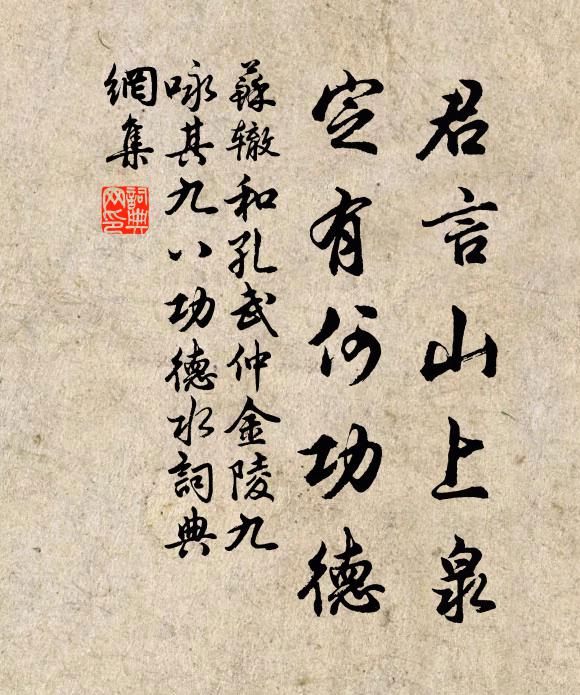 君言山上泉
定有何功德
蘇辙和孔武仲金陵九
咏其九八功德水詞典
網集
詞典
网印